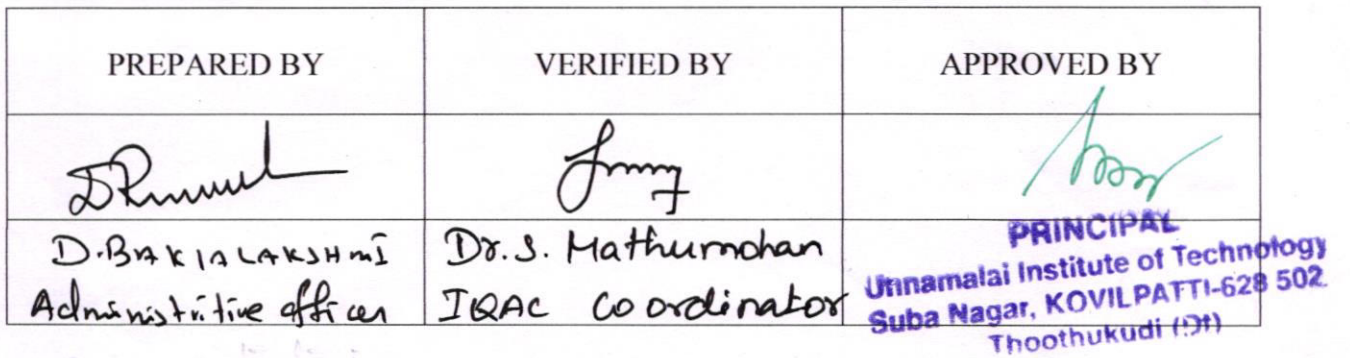 PREPARED BY
VERIFIED BY
APPROVED BY
D. BAKIALAKSHMI
Administritive officer
Dr. S. Mathumohan
IQAC Coordinator
PRINCIPAL
Unnamalai Institute of Technology
Suba Nagar, KOVILPATTI-628 502.
Thoothukudi (Dt)